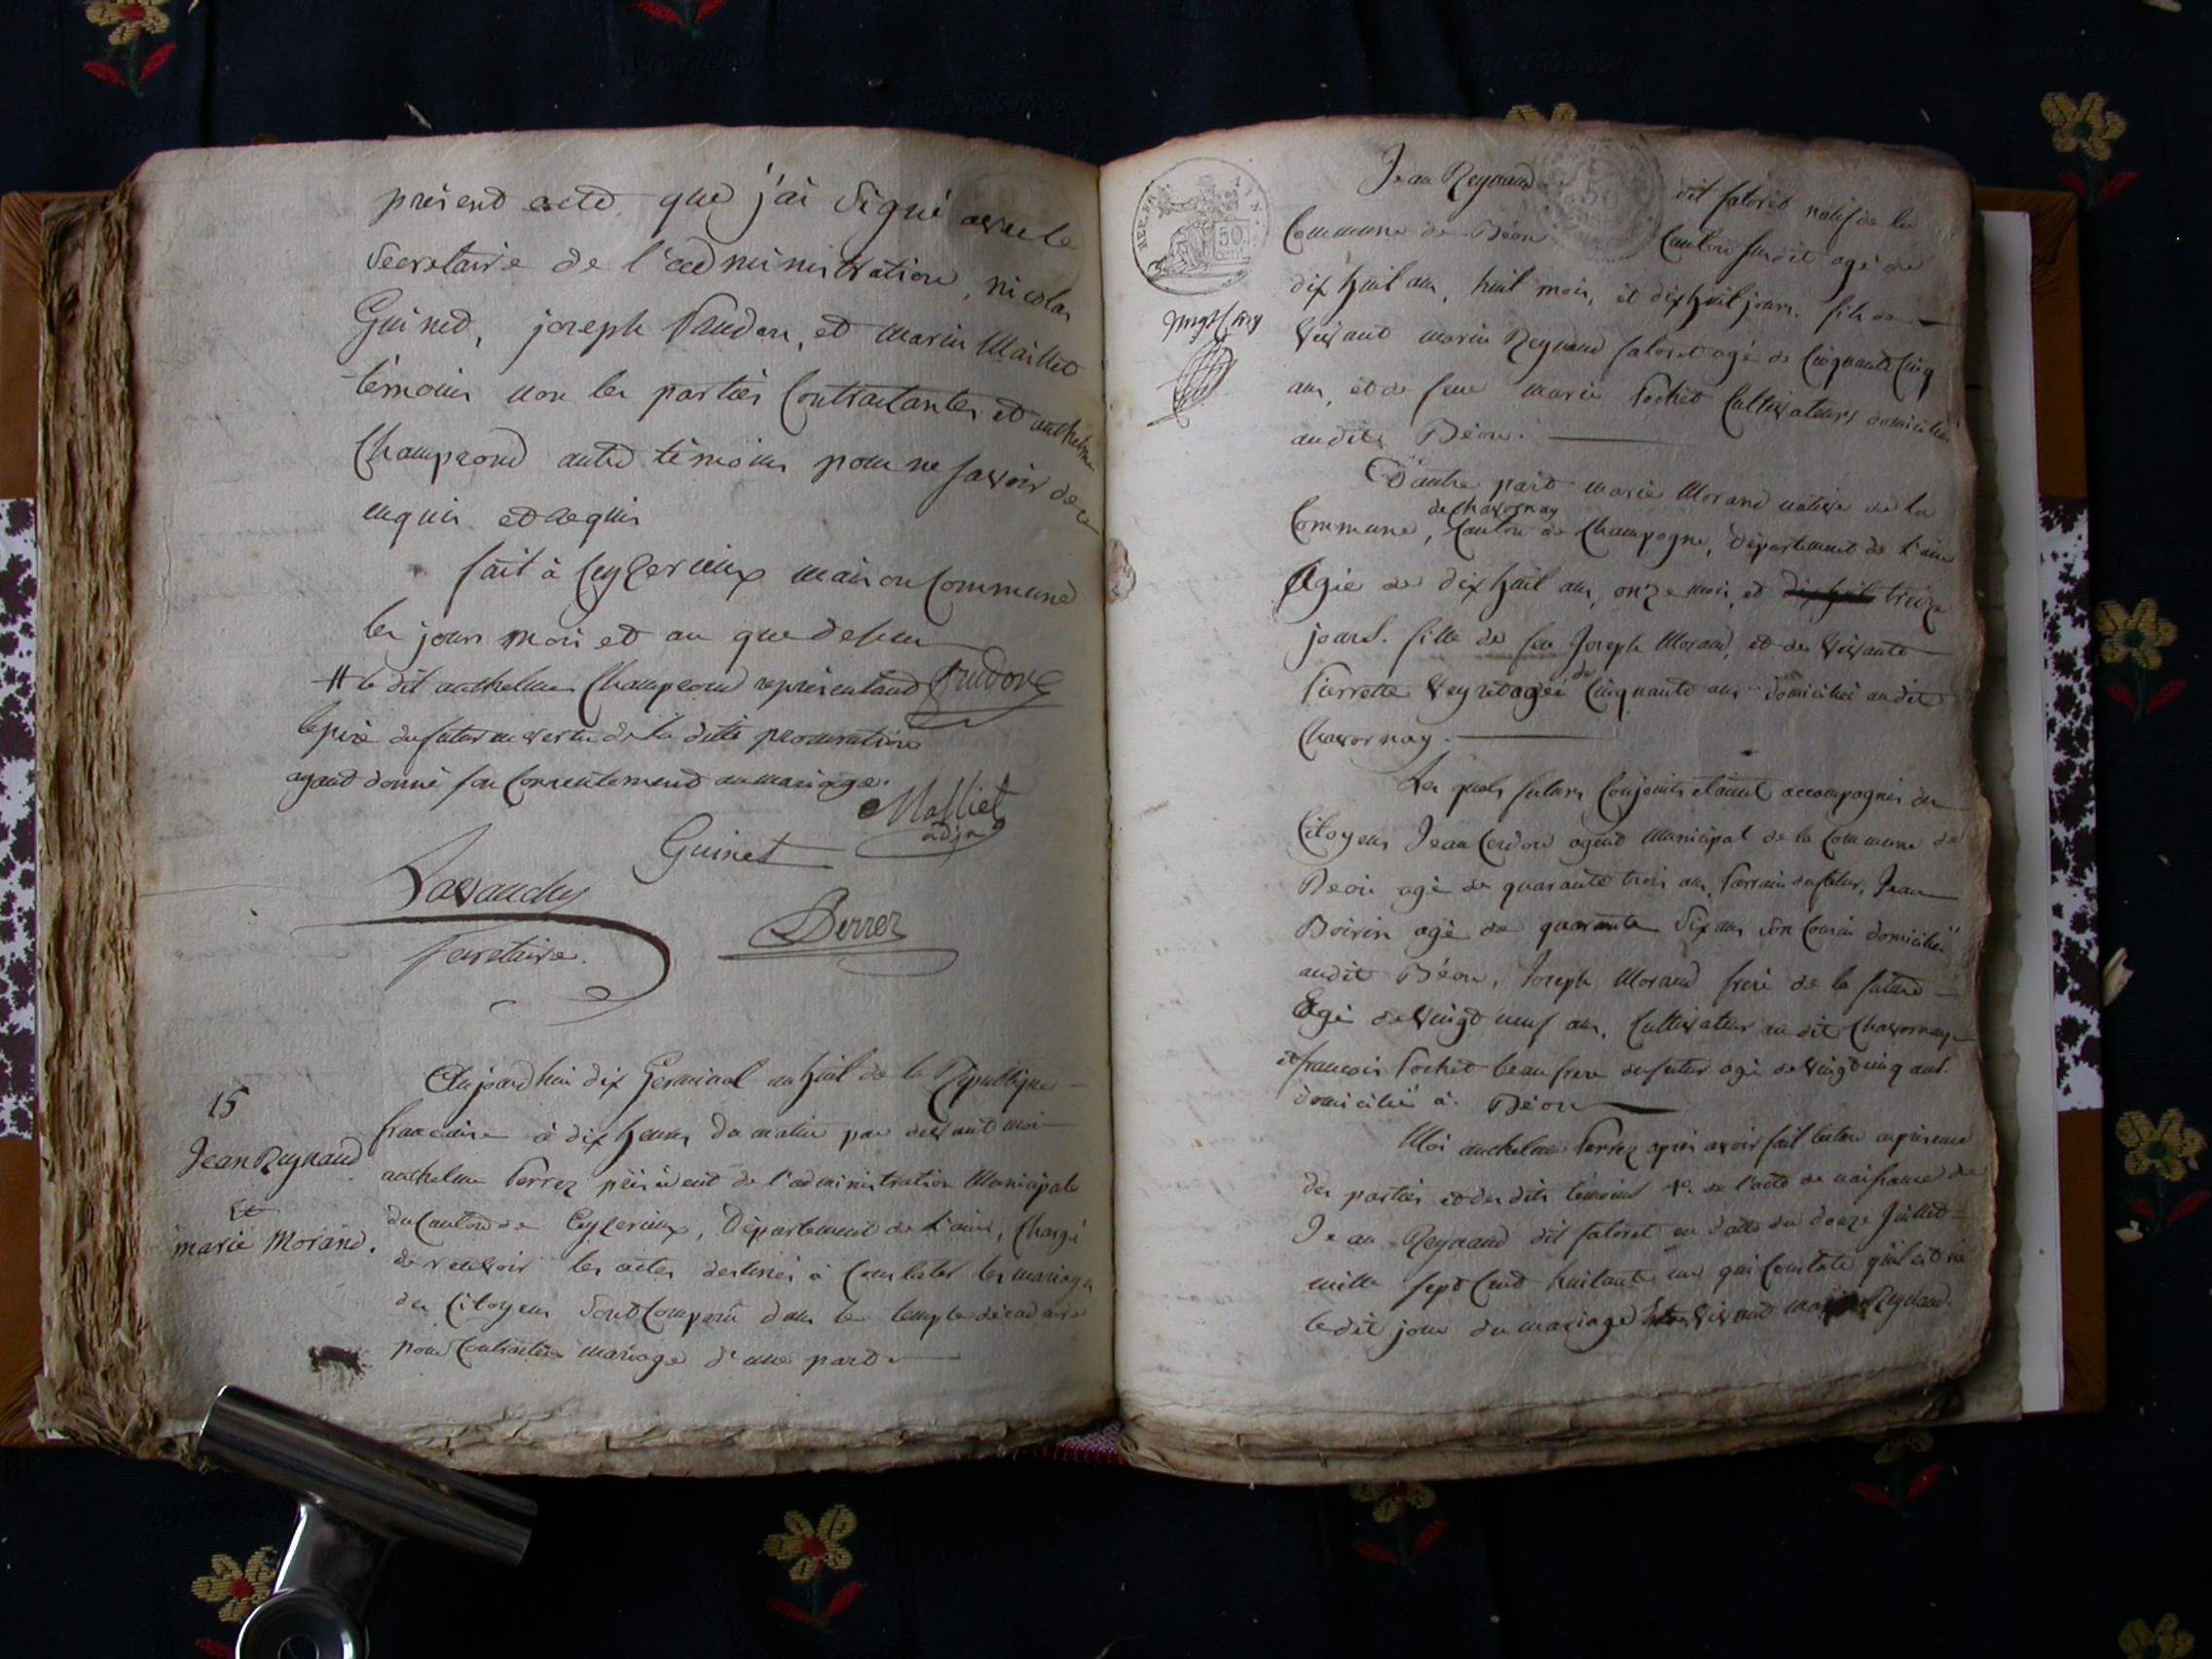 présent acte que j'ai signé avec le
Secretaire de l'administration, nicolas
Guinet, joseph Prudon, et marin Maillet
témoins non les parties Contractantes et anthelme
Champrond autre témoins pour ne savoir de ce
enquis et requis
fait à Ceyzerieux maison Commune
les jour mois et an que dessus
# le dit anthelme Champrond representant Prudon
le père du futur en vertu de la ditte procuration
ayant donné son Consentement au mariage.
Malliet
adjt
Guinet
Lavauchy
Secretaire.
Perrez
15
Jean Reynaud
Et
marie Morand.
Aujourd'hui dix Germinal an huit de la République
francaise à dix heures du matin par devant moi
anthelme Perrez président de l'administration Municipale
du Canton de Ceyzerieux, Département de l'ain, Chargé
de recevoir les actes destinés à Constater les mariages
des Citoyens Sont Comparû dans le temple décadaire
pour Contracter mariage d'une part
REP. FRA.
AIN.
50
cent.
50
Jean Reynaud dit saloret natif de la
Commune de Béon Canton susdit agé de
dix huit ans, huit mois, et dix huit jours. fils de
vivant marin Reynaud saloret agé de Cinquante Cinq
ans, et de feue marie Pochet Cultivateurs domiciliés
audit Béon.
D'autre part marie Morand native de la
Commune, de Chavornay Canton de Champagne, Département de l'ain
Agée de dix huit ans, onze mois, et dix huit treize
jours. fille de feu Joseph Morand, et de vivante
Pierrette Veyret agée de Cinquante ans domicilié au dit
Chavornay.
Les quels futurs Conjoints etaient accompagnés des
Citoyens Jean Cerdon agent Municipal de la Commune de
Béon agé de quarante trois ans, Parrain du futur, Jean
Boivin agé de quarante Six ans son Cousin domiciliés
audit Béon, Joseph Morand frere de la future
Agé de Vingt neuf ans, Cultivateur au dit Chavornay
et francois Pochet beau frere du futur agé de vingt cinq ans.
domicilié à Béon
Moi anthelme Perrez après avoir fait lecture en présence
des parties et des dits témoins 1º. de l'acte de naissance de
Jean Reynaud dit saloret en datte du douze Juillet
mille sept Cent huitante un qui Constate qu'il est né
le dit jour du mariage entre vivant marin Reynaud.